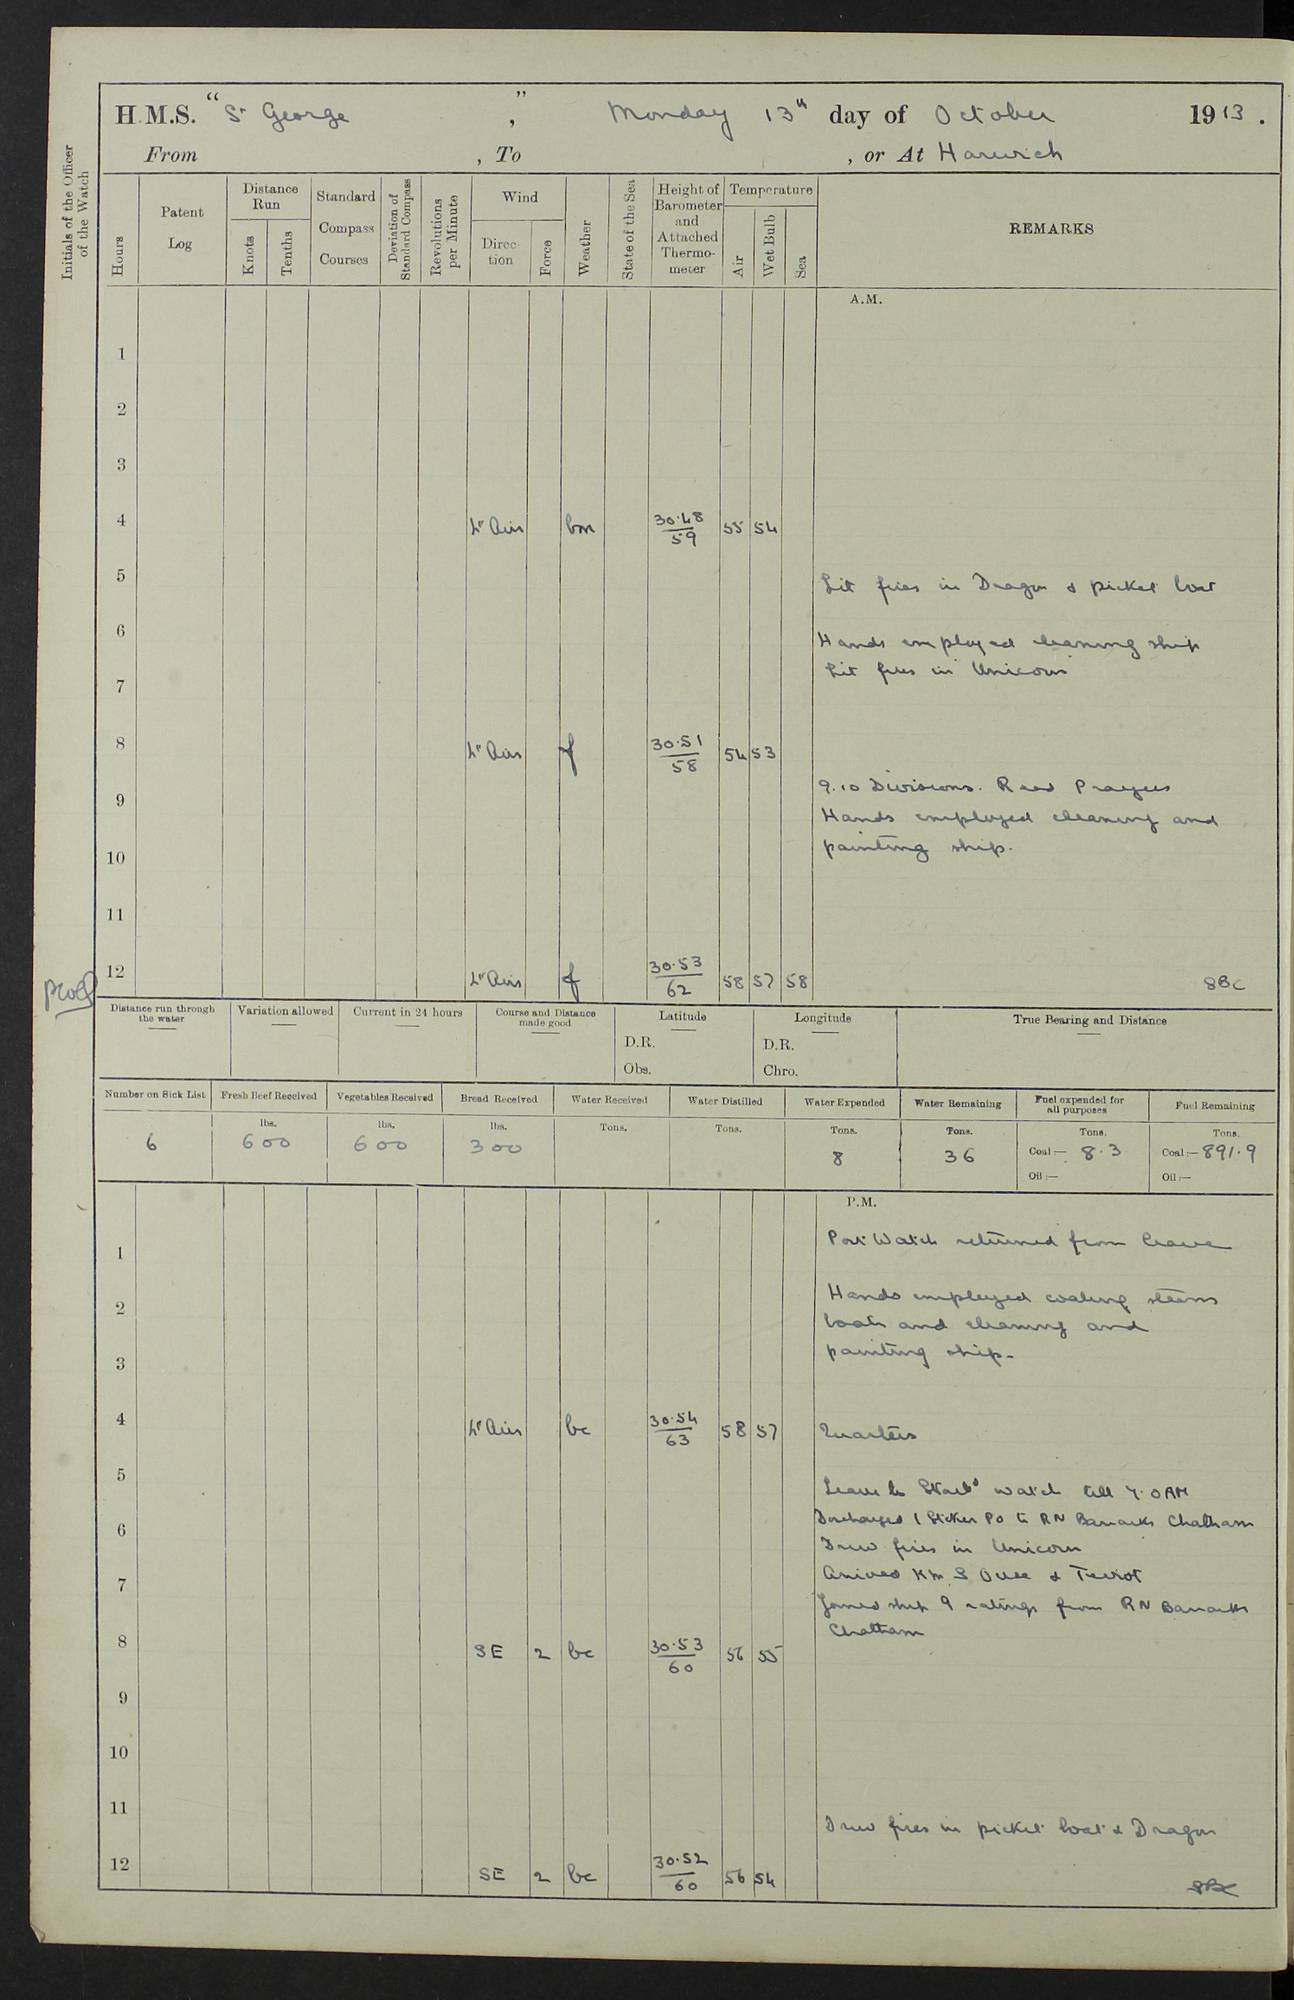 H.M.S. "St George", Monday 13th day of October 1913.
From , To , or At Harwich
Initials of the Officer of the Watch
Hours
Patent Log
Distance Run
Knots
Tenths
Standard Compass Courses
Deviation of Standard Compass
Revolutions per Minute
Wind
Direction
Force
Weather
State of the Sea
Height of Barometer and Attached Thermometer
Temperature
Air
Wet Bulb
Sea
REMARKS
A.M.
1
2
3
4 Lt Airs bm 30.48/59 55 54
5 Lit fires in Dragon & picket boat
6 Hands employed cleaning ship
Lit fires in Unicorn
7
8 Lt Airs f 30.51/58 54 53
9.10 Divisions. Read Prayers
9 Hands employed cleaning and
painting ship.
10
11
12 Lt Airs f 30.53/62 58 57 58
SBC
Distance run through the water
Variation allowed
Current in 24 hours
Course and Distance made good
Latitude
D.R.
Obs.
Longitude
D.R.
Chro.
True Bearing and Distance
Number on Sick List 6
Fresh Beef Received lbs. 600
Vegetables Received lbs. 600
Bread Received lbs. 300
Water Received Tons.
Water Distilled Tons.
Water Expended Tons. 8
Water Remaining Tons. 36
Fuel expended for all purposes Tons. Coal:— 8.3 Oil:—
Fuel Remaining Tons. Coal:— 891.9 Oil:—
P.M.
1 Port Watch returned from leave
2 Hands employed coaling steam
boats and cleaning and
3 painting ship.
4 Lt Airs bc 30.54/63 58 57 Quarters
5 Leave to Starbd watch till 7.0 AM
Discharged 1 Stoker PO to RN Barracks Chatham
6 Drew fires in Unicorn
7 Arrived HM S Ouse & Teviot
Joined ship 9 ratings from RN Barracks
Chatham
8 SE 2 bc 30.53/60 56 55
9
10
11 Drew fires in picket boat & Dragon
12 SE 2 bc 30.52/60 56 54
SBC